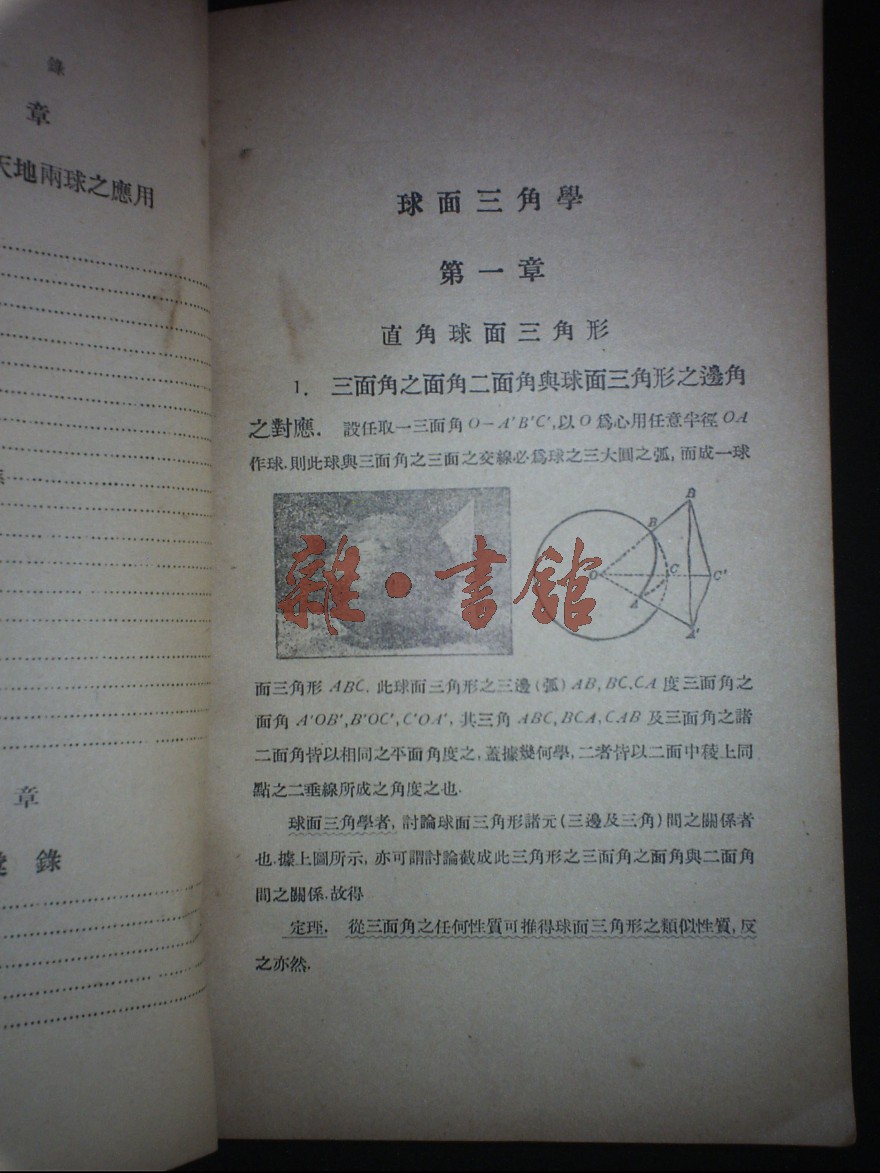 錄
章
天地兩球之應用
章
錄
球面三角學
第一章
直角球面三角形
1. 三面角之面角二面角與球面三角形之邊角
之對應. 設任取一三面角O-A'B'C',以O爲心用任意半徑OA
作球.則此球與三面角之三面之交線必爲球之三大圓之弧,而成一球
B
B
O
C
C'
A
A'
雜·書舘
面三角形ABC. 此球面三角形之三邊(弧)AB, BC, CA度三面角之
面角A'OB',B'OC',C'OA', 其三角ABC,BCA,CAB及三面角之諸
二面角皆以相同之平面角度之,蓋據幾何學,二者皆以二面中稜上同
點之二垂線所成之角度之也.
球面三角學者,討論球面三角形諸元(三邊及三角)間之關係者
也.據上圖所示,亦可謂討論截成此三角形之三面角之面角與二面角
間之關係.故得
定理. 從三面角之任何性質可推得球面三角形之類似性質,反
之亦然.